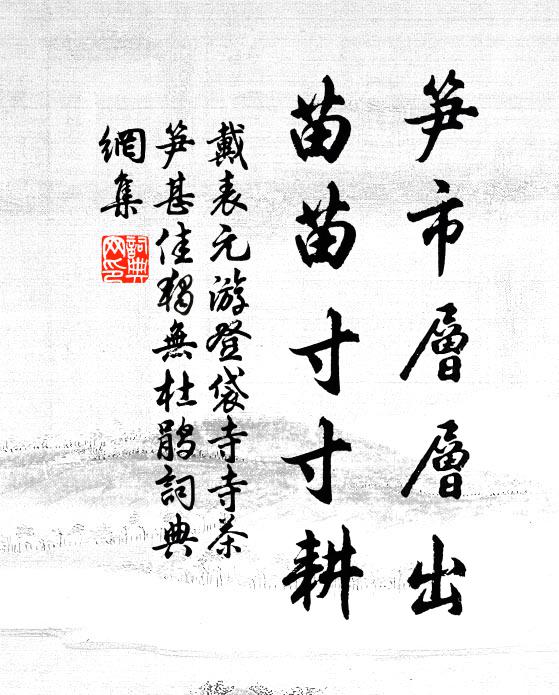 笋市層層出
苗苗寸寸耕
戴表元游登袋寺寺茶
笋甚佳獨無杜鵑詞典
網集
詞典
网印